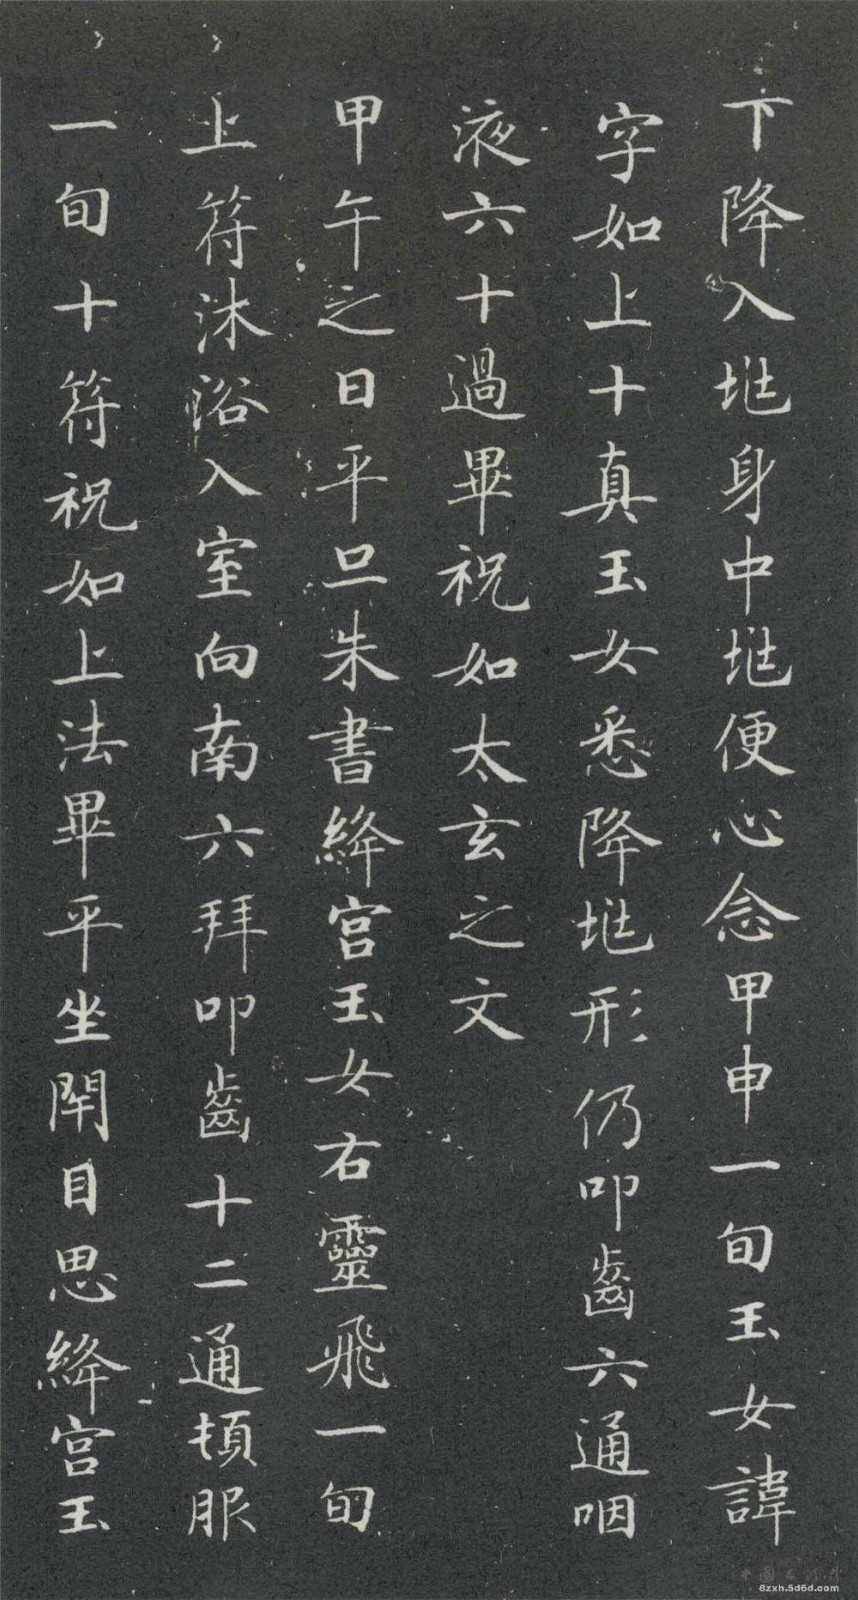 下降入兆身中兆便心念甲申一旬玉女諱
字如上十真玉女悉降兆形仍叩齒六通咽
液六十過畢祝如太玄之文
甲午之日平旦朱書絳宮玉女右靈飛一旬
上符沐浴入室向南六拜叩齒十二通頓服
一旬十符祝如上法畢平坐閉目思絳宮玉
6zxh.5d6d.com